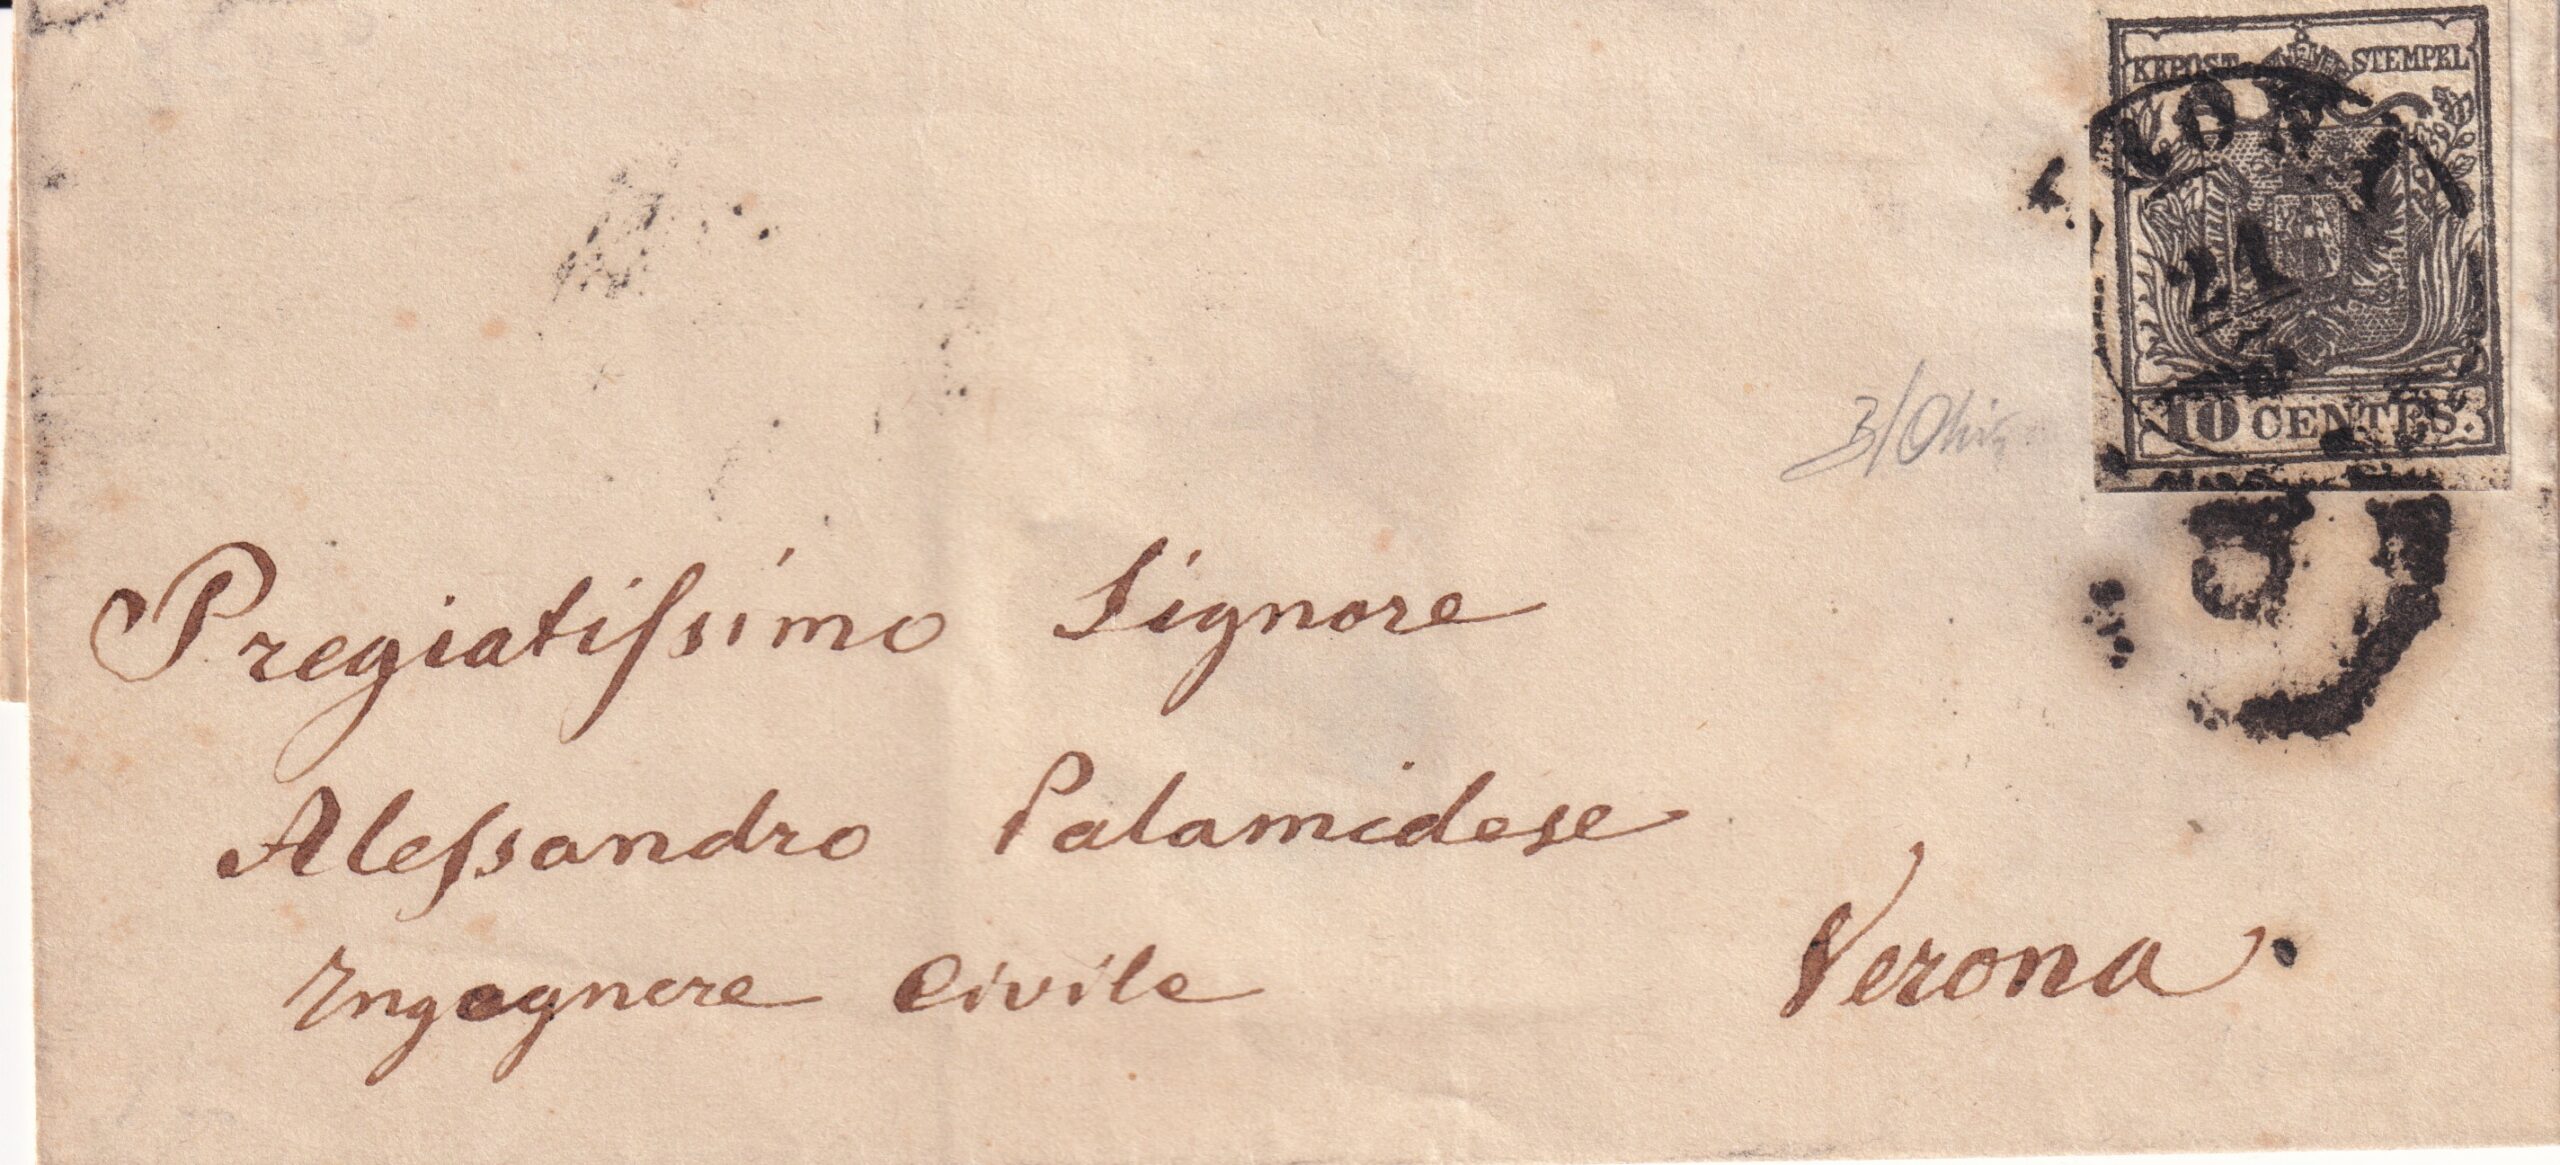 KKPOST STEMPEL
21
10 CENTES.
D
Pregiatissimo Signore
Alessandro Palamidese
Ingegnere Civile
Verona.